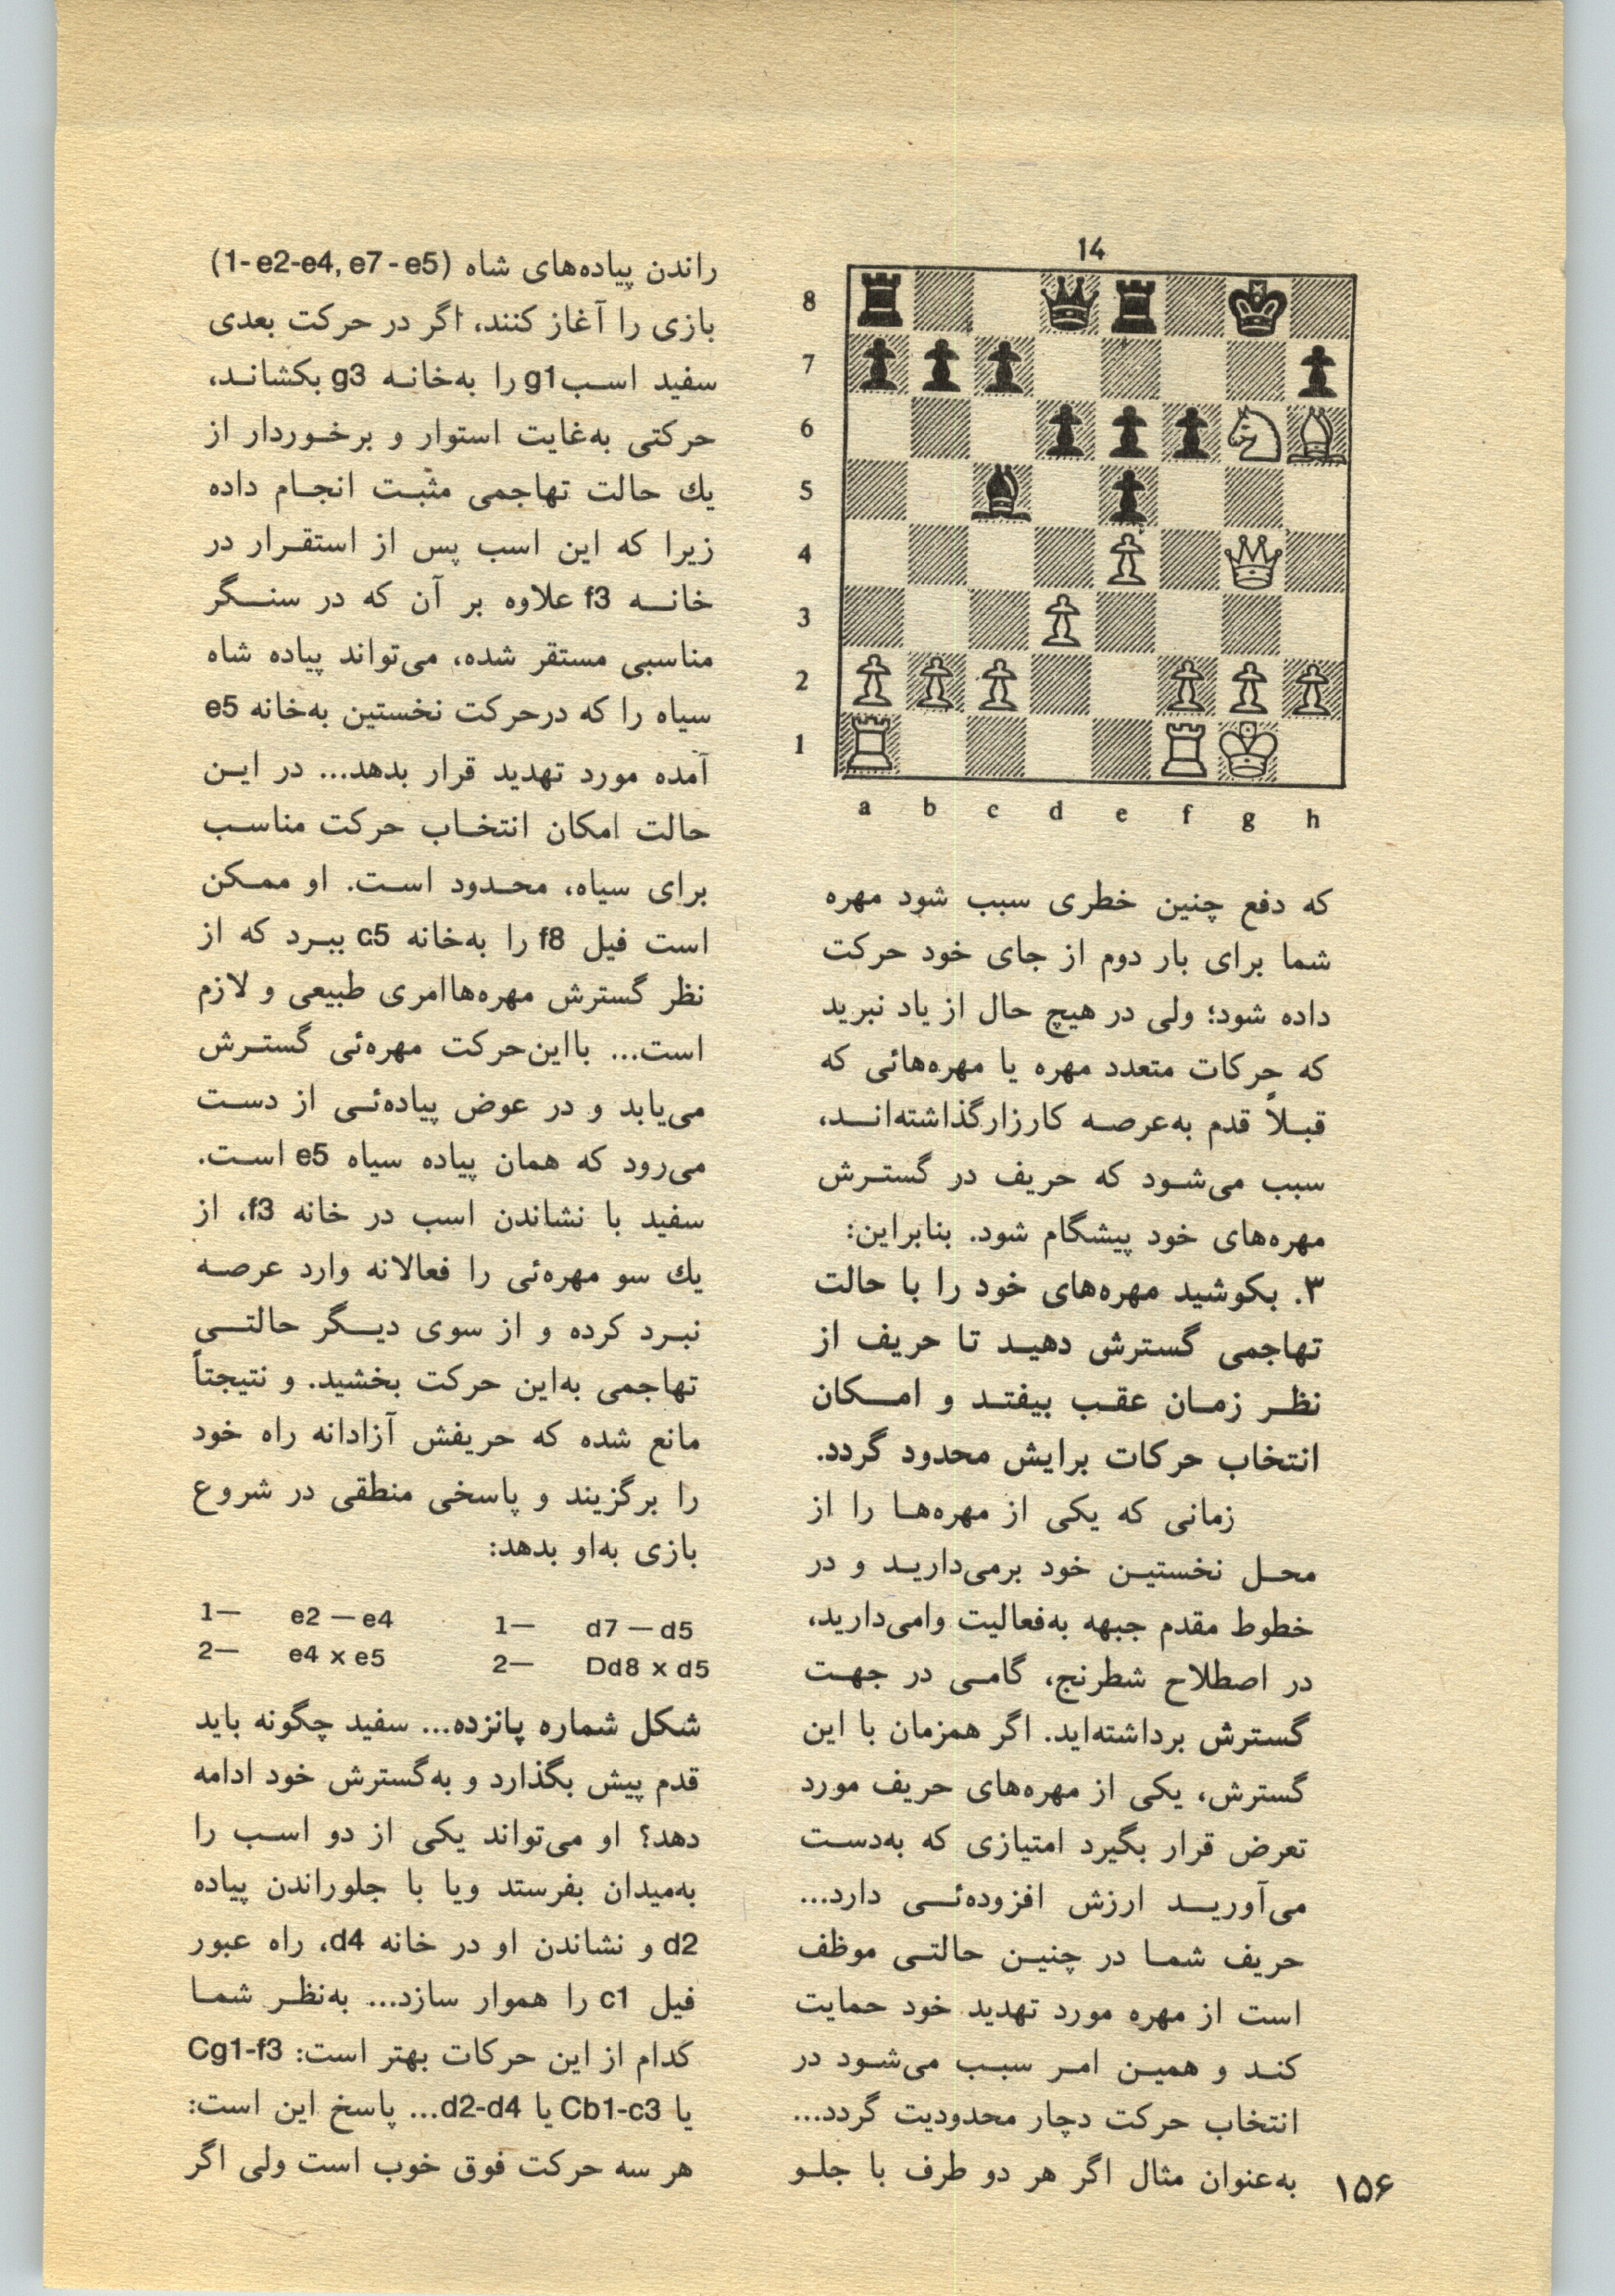 14
8
7
6
5
4
3
2
1
a b c d e f g h
که دفع چنین خطری سبب شود مهره
شما برای بار دوم از جای خود حرکت
داده شود؛ ولی در هیچ حال از یاد نبرید
که حرکات متعدد مهره یا مهره‌هائی که
قبلاً قدم به‌عرصه کارزارگذاشته‌اند،
سبب می‌شود که حریف در گسترش
مهره‌های خود پیشگام شود. بنابراین:
۳. بکوشید مهره‌های خود را با حالت
تهاجمی گسترش دهید تا حریف از
نظر زمان عقب بیفتد و امکان
انتخاب حرکات برایش محدود گردد.
زمانی که یکی از مهره‌ها را از
محل نخستین خود برمی‌دارید و در
خطوط مقدم جبهه به‌فعالیت وامی‌دارید،
در اصطلاح شطرنج، گامی در جهت
گسترش برداشته‌اید. اگر همزمان با این
گسترش، یکی از مهره‌های حریف مورد
تعرض قرار بگیرد امتیازی که به‌دست
می‌آورید ارزش افزوده‌ئی دارد...
حریف شما در چنین حالتی موظف
است از مهره مورد تهدید خود حمایت
کند و همین امر سبب می‌شود در
انتخاب حرکت دچار محدودیت گردد...
به‌عنوان مثال اگر هر دو طرف با جلو
راندن پیاده‌های شاه (1- e2-e4, e7 - e5)
بازی را آغاز کنند، اگر در حرکت بعدی
سفید اسب g1 را به‌خانه g3 بکشاند،
حرکتی به‌غایت استوار و برخوردار از
یك حالت تهاجمی مثبت انجام داده
زیرا که این اسب پس از استقرار در
خانه f3 علاوه بر آن که در سنگر
مناسبی مستقر شده، می‌تواند پیاده شاه
سیاه را که درحرکت نخستین به‌خانه e5
آمده مورد تهدید قرار بدهد... در این
حالت امکان انتخاب حرکت مناسب
برای سیاه، محدود است. او ممکن
است فیل f8 را به‌خانه c5 ببرد که از
نظر گسترش مهره‌هاامری طبیعی و لازم
است... بااین‌حرکت مهره‌ئی گسترش
می‌یابد و در عوض پیاده‌ئی از دست
می‌رود که همان پیاده سیاه e5 است.
سفید با نشاندن اسب در خانه f3، از
یك سو مهره‌ئی را فعالانه وارد عرصه
نبرد کرده و از سوی دیگر حالتی
تهاجمی به‌این حرکت بخشید. و نتیجتاً
مانع شده که حریفش آزادانه راه خود
را برگزیند و پاسخی منطقی در شروع
بازی به‌او بدهد:
1— e2 — e4 1— d7 — d5
2— e4 x e5 2— Dd8 x d5
شکل شماره پانزده... سفید چگونه باید
قدم پیش بگذارد و به‌گسترش خود ادامه
دهد؟ او می‌تواند یکی از دو اسب را
به‌میدان بفرستد ویا با جلوراندن پیاده
d2 و نشاندن او در خانه d4، راه عبور
فیل c1 را هموار سازد... به‌نظر شما
کدام از این حرکات بهتر است: Cg1-f3
یا Cb1-c3 یا d2-d4... پاسخ این است:
هر سه حرکت فوق خوب است ولی اگر
۱۵۶